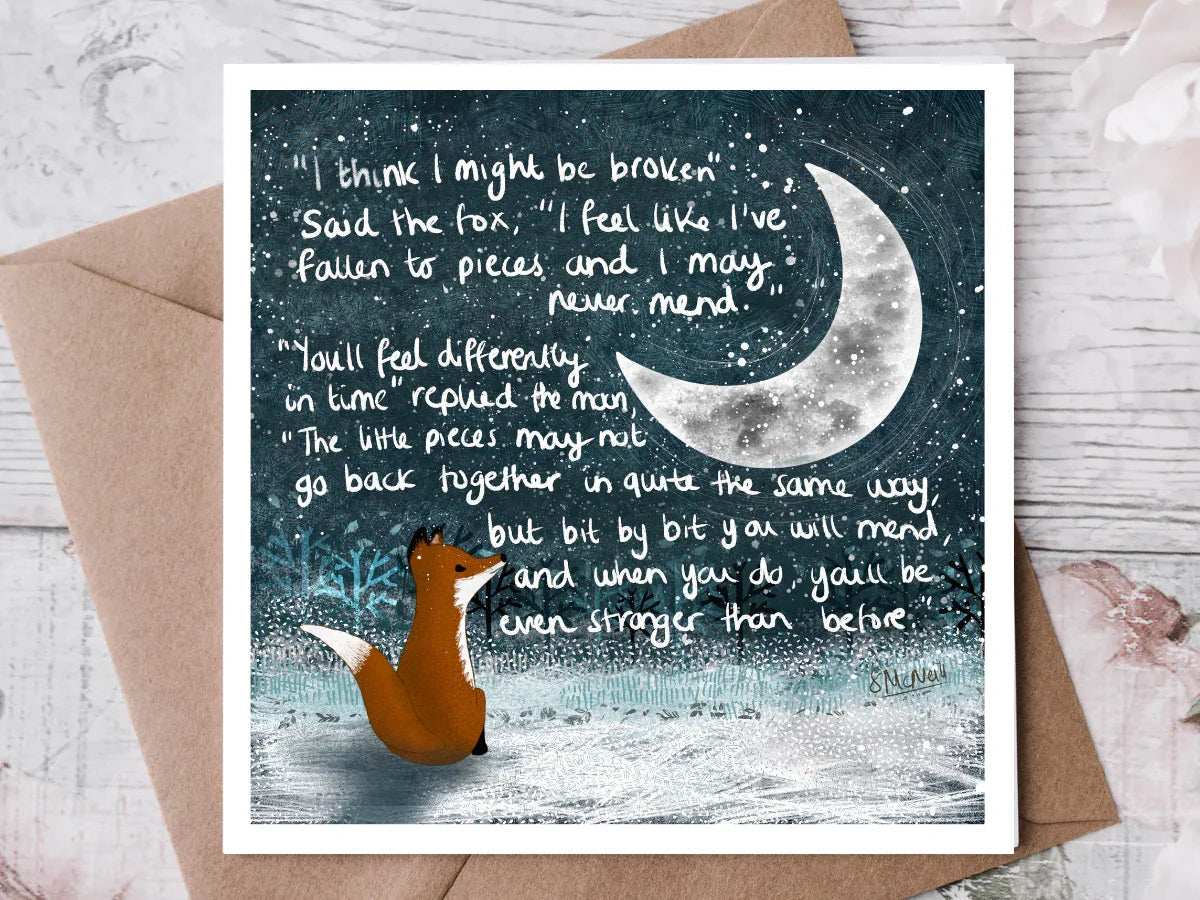 "I think I might be broken"
Said the fox, "I feel like I've
fallen to pieces and I may
never mend."
"You'll feel differently
in time" replied the moon,
"The little pieces may not
go back together in quite the same way,
but bit by bit you will mend,
and when you do, you'll be
even stronger than before."
S McNeill